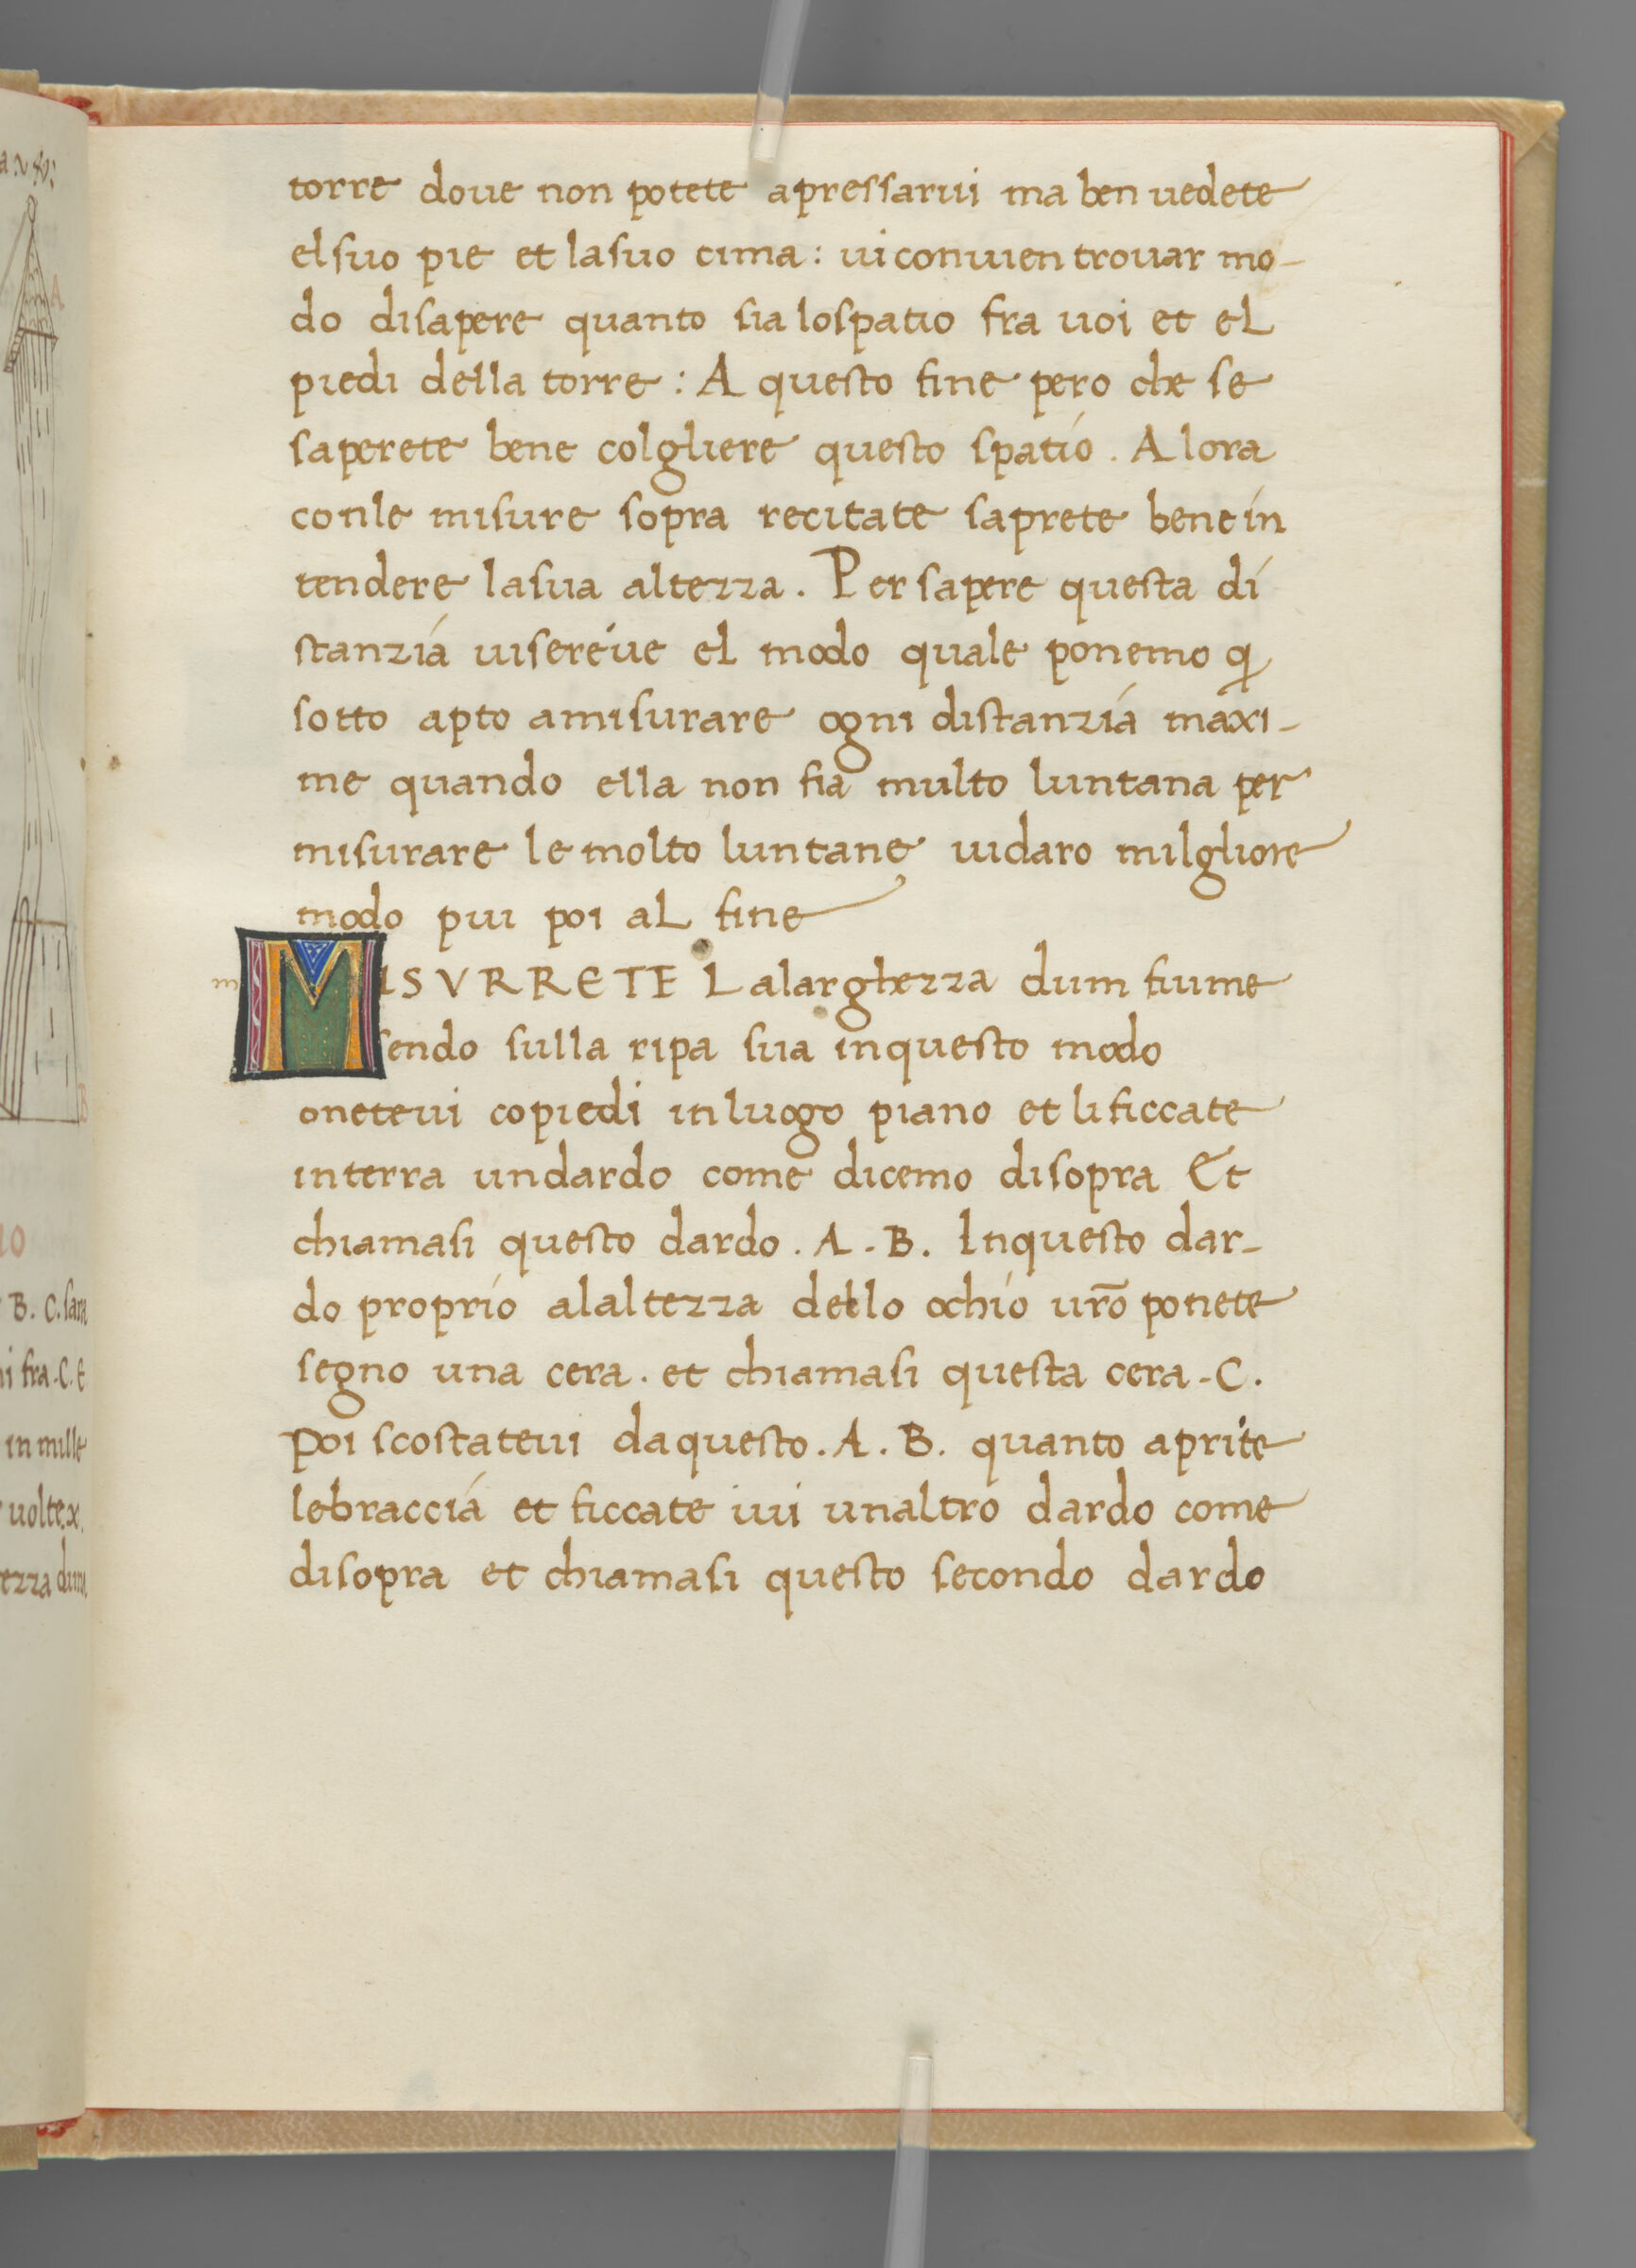 torre doue non potete apressarui ma ben uedete
elsuo pie et lasuo cima : ui conuien trouar mo-
do disapere quanto sia lospatio fra uoi et el
piedi della torre : A questo fine pero che se
saperete bene colgliere questo spatio . Alora
conle misure sopra recitate saprete bene in
tendere lasua altezza . Per sapere questa di
stanzia uisereive el modo quale ponemo q
sotto apto amisurare ogni distanzia maxi-
me quando ella non fia multo luntana per
misurare le molto luntane uidaro milgliore
modo piu poi al fine
m
MISVRRETE Lalarghezza dum fiume
sendo sulla ripa sua inquesto modo
oneteui copiedi inluogo piano et li ficcate
interra undardo come dicemo disopra Et
chiamasi questo dardo . A . B . Inquesto dar-
do proprio alaltezza dello ochio uro̅ ponete
segno una cera . et chiamasi questa cera . C .
Poi scostateui daquesto . A . B . quanto aprite
lebraccia et ficcate iui unaltro dardo come
disopra et chiamasi questo secondo dardo
B . C . sara
fra . C . E
in mille
uolte . x .